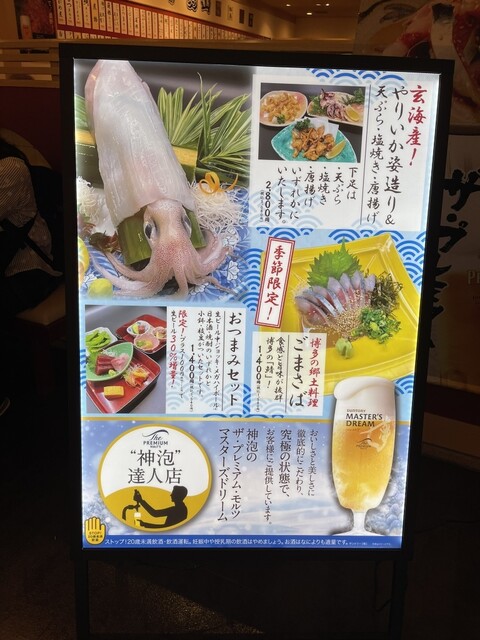 玄海産！
やりいか姿造り&
天ぷら・塩焼き・唐揚げ
下足は
・天ぷら
・塩焼き
・唐揚げ
いずれかに
いたします
2,800円
季節限定！
博多の郷土料理
ごまさば
食感と旨味が抜群
博多の「鯖」！
1,400円
おつまみセット
生ビール中・ジョッキ・メガハイボール・
日本酒・焼酎のいずれかと、
小鉢・枝豆がついたセットです。
1,400円
限定！プラス100円で
生ビール30%増量！
The
PREMIUM
MALT'S
“神泡”
達人店
SUNTORY
MASTER'S
DREAM
おいしさと美しさに
徹底的にこだわり、
究極の状態で、
お客様にご提供しています。
神泡の
ザ・プレミアム・モルツ
マスターズドリーム
STOP!
20歳未満
飲酒
ストップ！20歳未満飲酒・飲酒運転。妊娠中や授乳期の飲酒はやめましょう。お酒はなによりも適量です。